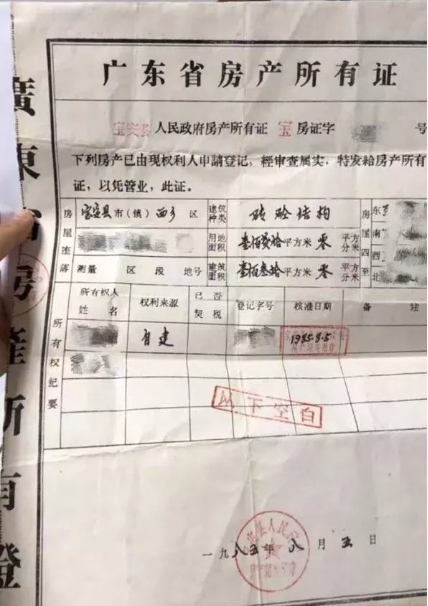 广东省房产所有证
宝安县人民政府房产所有证 宝房证字 号
下列房产已由现权利人申請登记，經审查属实，特发給房产所有
证，以凭管业，此证。
房屋座落 宝安县市（镇）西乡区 建筑种类 砖砼结构 房屋四至 东 南 西 北
用地面积 平方米 零 平方分米
测量 区 段 地号 建筑面积 平方米 零 平方分米
所有权纪要 所有权人姓名 权利来源 已否契税 登记字号 核准日期 备 注
自建 1985.8.5
以下空白
一九八五年八月五日
廣東省房產所有證